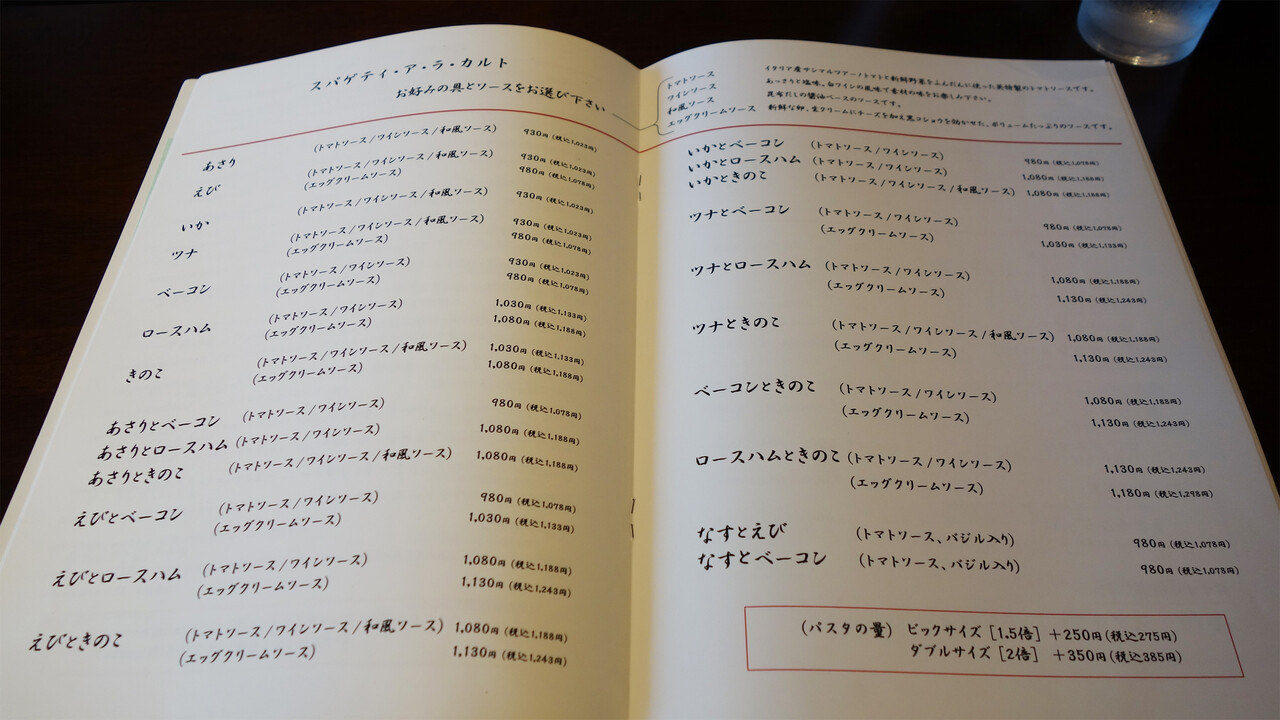 スパゲティ・ア・ラ・カルト
お好みの具とソースをお選び下さい
あさり (トマトソース/ワインソース/和風ソース) 930円(税込1,023円)
えび (トマトソース/ワインソース/和風ソース) 930円(税込1,023円)
(エッグクリームソース) 980円(税込1,078円)
いか (トマトソース/ワインソース/和風ソース) 930円(税込1,023円)
ツナ (トマトソース/ワインソース/和風ソース) 930円(税込1,023円)
(エッグクリームソース) 980円(税込1,078円)
ベーコン (トマトソース/ワインソース) 930円(税込1,023円)
(エッグクリームソース) 980円(税込1,078円)
ロースハム (トマトソース/ワインソース) 1,030円(税込1,133円)
(エッグクリームソース) 1,080円(税込1,188円)
きのこ (トマトソース/ワインソース/和風ソース) 1,030円(税込1,133円)
(エッグクリームソース) 1,080円(税込1,188円)
あさりとベーコン (トマトソース/ワインソース) 980円(税込1,078円)
あさりとロースハム (トマトソース/ワインソース) 1,080円(税込1,188円)
あさりときのこ (トマトソース/ワインソース/和風ソース) 1,080円(税込1,188円)
えびとベーコン (トマトソース/ワインソース) 980円(税込1,078円)
(エッグクリームソース) 1,030円(税込1,133円)
えびとロースハム (トマトソース/ワインソース) 1,080円(税込1,188円)
(エッグクリームソース) 1,130円(税込1,243円)
えびときのこ (トマトソース/ワインソース/和風ソース) 1,080円(税込1,188円)
(エッグクリームソース) 1,130円(税込1,243円)
トマトソース イタリア産サンマルツアーノトマトと新鮮野菜をふんだんに使った英特製のトマトソースです。
ワインソース あっさりと塩味。白ワインの風味で素材の味をお楽しみ下さい。
和風ソース 昆布だしの醤油ベースのソースです。
エッグクリームソース 新鮮な卵、生クリームにチーズを加え黒コショウを効かせた、ボリュームたっぷりのソースです。
いかとベーコン (トマトソース/ワインソース) 980円(税込1,078円)
いかとロースハム (トマトソース/ワインソース) 1,080円(税込1,188円)
いかときのこ (トマトソース/ワインソース/和風ソース) 1,080円(税込1,188円)
ツナとベーコン (トマトソース/ワインソース) 980円(税込1,078円)
(エッグクリームソース) 1,030円(税込1,133円)
ツナとロースハム (トマトソース/ワインソース) 1,080円(税込1,188円)
(エッグクリームソース) 1,130円(税込1,243円)
ツナときのこ (トマトソース/ワインソース/和風ソース) 1,080円(税込1,188円)
(エッグクリームソース) 1,130円(税込1,243円)
ベーコンときのこ (トマトソース/ワインソース) 1,080円(税込1,188円)
(エッグクリームソース) 1,130円(税込1,243円)
ロースハムときのこ (トマトソース/ワインソース) 1,130円(税込1,243円)
(エッグクリームソース) 1,180円(税込1,298円)
なすとえび (トマトソース、バジル入り) 980円(税込1,078円)
なすとベーコン (トマトソース、バジル入り) 980円(税込1,078円)
(パスタの量) ビックサイズ[1.5倍] +250円(税込275円)
ダブルサイズ[2倍] +350円(税込385円)